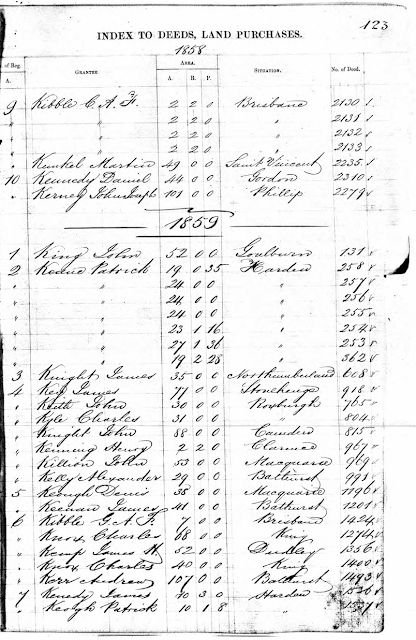 123
INDEX TO DEEDS, LAND PURCHASES.
1858
of Reg. GRANTEE AREA. SITUATION. No. of Deed.
A. A. R. P.
9 Kibble C. A. F. 2 2 0 Brisbane 2130
" " 2 2 0 " 2131
" " 2 2 0 " 2132
" " 2 2 0 " 2133
" Kunkel Martin 49 0 0 Saint Vincent 2235
10 Kennedy Daniel 44 0 0 Gordon 2310
" Kerney John Joseph 101 0 0 Phillip 2279
1859
1 King John 52 0 0 Goulburn 131
2 Keane Patrick 19 0 35 Harden 258
" " 24 0 0 " 257
" " 24 0 0 " 256
" " 24 0 0 " 255
" " 23 1 16 " 254
" " 27 1 36 " 253
" " 19 2 28 " 362
3 Knight James 35 0 0 Northumberland 608
4 Key James 77 0 0 Stonehenge 918
" Keith John 30 0 0 Roxburgh 765
" Kyle Charles 31 0 0 " 804
" Knight John 88 0 0 Camden 815
" Kenning Henry 2 2 0 Clarence 967
" Killion John 53 0 0 Macquarie 969
" Kelly Alexander 29 0 0 Bathurst 991
5 Keough Denis 38 0 0 Macquarie 1196
" Keenan James 41 0 0 Bathurst 1201
6 Kibble G. A. F. 7 0 0 Brisbane 1424
" Knox Charles 68 0 0 King 1274
" Kemp James H. 52 0 0 Dudley 1356
" Knox Charles 40 0 0 King 1400
" Kerr Andrew 107 0 0 Bathurst 1493
7 Kenedy James 10 3 0 Harden 1526
" Keogh Patrick 10 1 8 " 1527